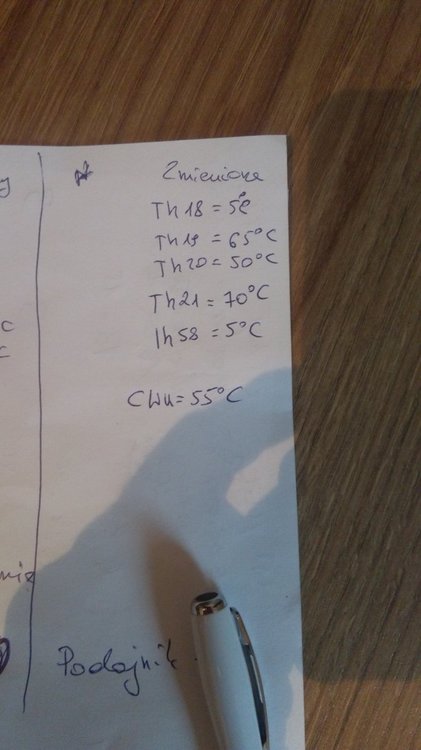 Zmienione
Th18 = 5°C
Th19 = 65°C
Th20 = 50°C
Th21 = 70°C
Th58 = 5°C
CWU = 55°C
Podajnik